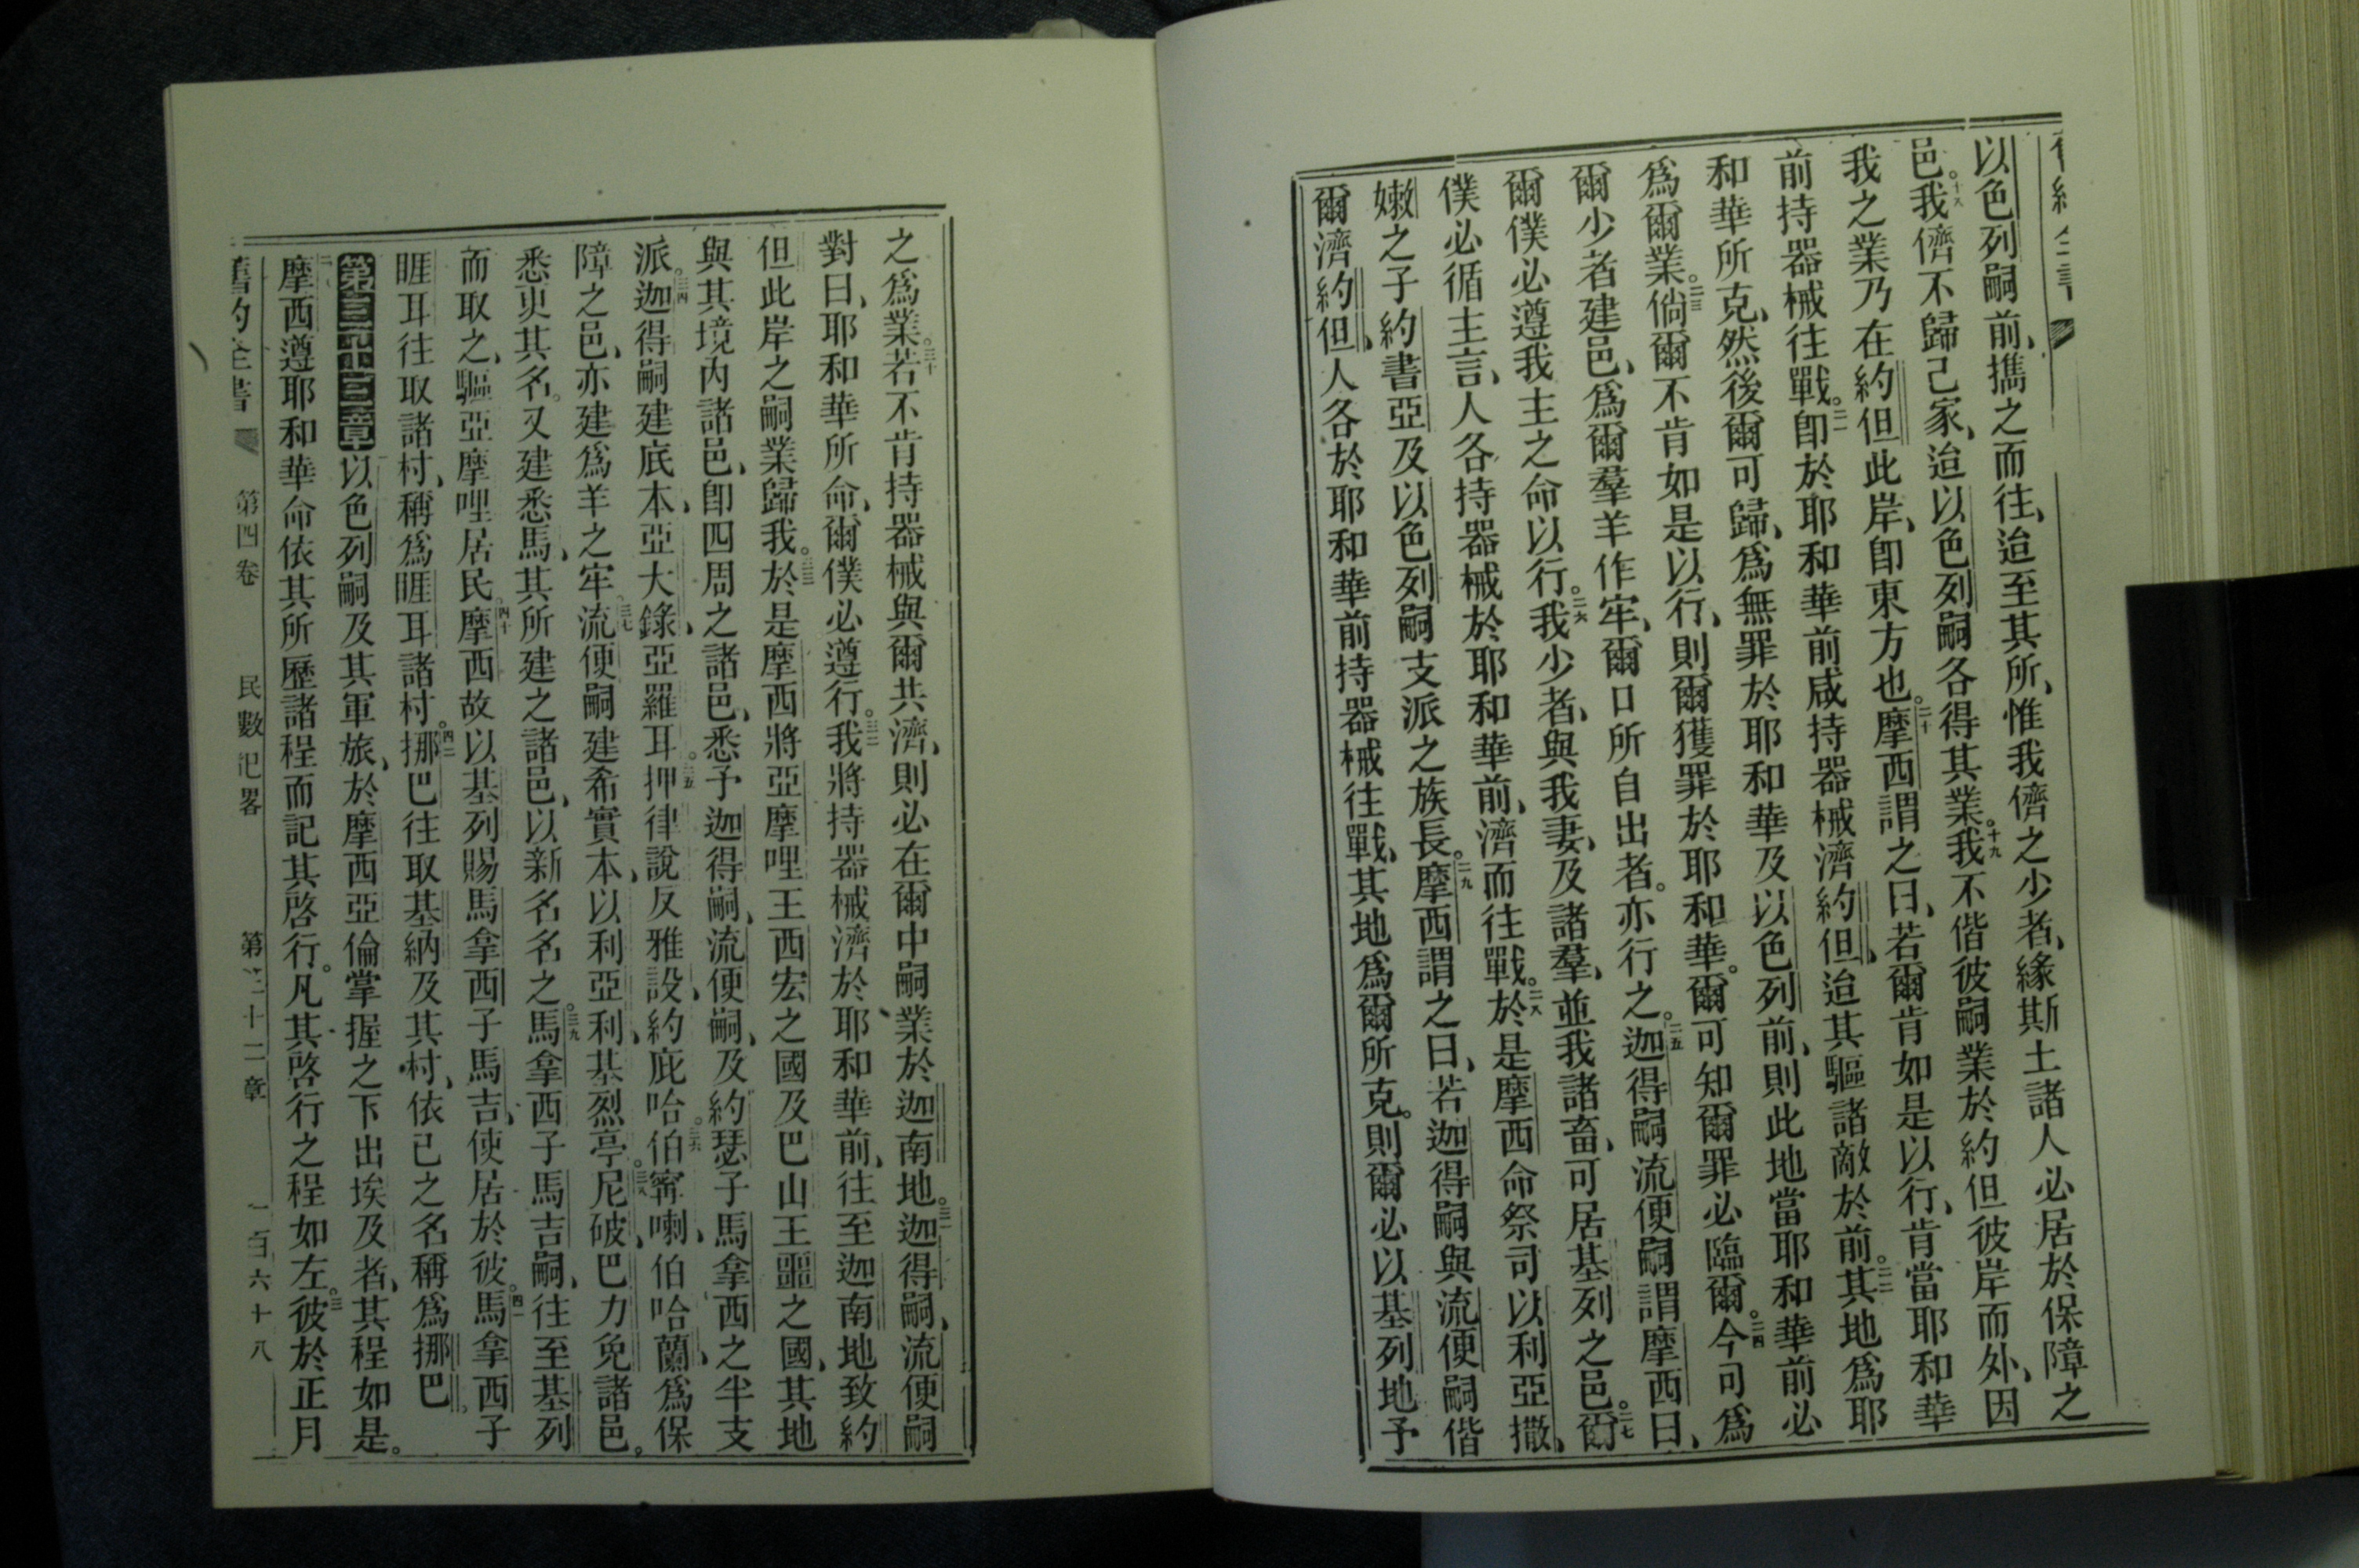 以色列嗣前、攜之而往、迨至其所、惟我儕之少者、緣斯土諸人必居於保障之
邑。十八我儕不歸己家、迨以色列嗣各得其業。十九我不偕彼嗣業於約但彼岸而外、因
我之業乃在約但此岸、卽東方也。二十摩西謂之曰、若爾肯如是以行、肯當耶和華
前持器械往戰。二一卽於耶和華前咸持器械濟約但、迨其驅諸敵於前。二二其地爲耶
和華所克、然後爾可歸、爲無罪於耶和華及以色列前、則此地當耶和華前必
爲爾業。二三倘爾不肯如是以行、則爾獲罪於耶和華。爾可知爾罪必臨爾。二四今可爲
爾少者建邑、爲爾羣羊作牢、爾口所自出者。亦行之。二五迦得嗣流便嗣謂摩西曰、
爾僕必遵我主之命以行。二六我少者、與我妻、及諸羣、並我諸畜、可居基列之邑。二七爾
僕必循主言、人各持器械於耶和華前、濟而往戰。二八於是摩西命祭司以利亞撒、
嫩之子約書亞及以色列嗣支派之族長。二九摩西謂之曰、若迦得嗣與流便嗣偕
爾濟約但、人各於耶和華前持器械往戰、其地爲爾所克。則爾必以基列地予
之爲業。三十若不肯持器械與爾共濟、則必在爾中嗣業於迦南地。三一迦得嗣、流便嗣
對曰、耶和華所命、爾僕必遵行。三二我將持器械濟於耶和華前、往至迦南地致約
但此岸之嗣業歸我。三三於是摩西將亞摩哩王西宏之國及巴山王噩之國、其地
與其境內諸邑、卽四周之諸邑、悉予迦得嗣、流便嗣、及約瑟子馬拿西之半支
派。三四迦得嗣建底本、亞大錄、亞羅耳。三五押律說反雅設、約庇哈。三六伯甯喇、伯哈蘭、爲保
障之邑、亦建爲羊之牢。三七流便嗣建希實本、以利亞利、基烈亭。三八尼破、巴力免諸邑。
悉更其名。又建悉馬、其所建之諸邑、以新名名之。三九馬拿西子馬吉嗣、往至基列
而取之、驅亞摩哩居民。四十摩西故以基列賜馬拿西子馬吉、使居於彼。四一馬拿西子
睚耳往取諸村、稱爲睚耳諸村。四二挪巴往取基納及其村、依己之名稱爲挪巴。
第三十三章以色列嗣及其軍旅、於摩西亞倫掌握之下出埃及者、其程如是。
二摩西遵耶和華命依其所歷諸程而記其啓行。凡其啓行之程如左。三彼於正月
舊約全書 第四卷 民數記畧 第三十二章 一百六十八